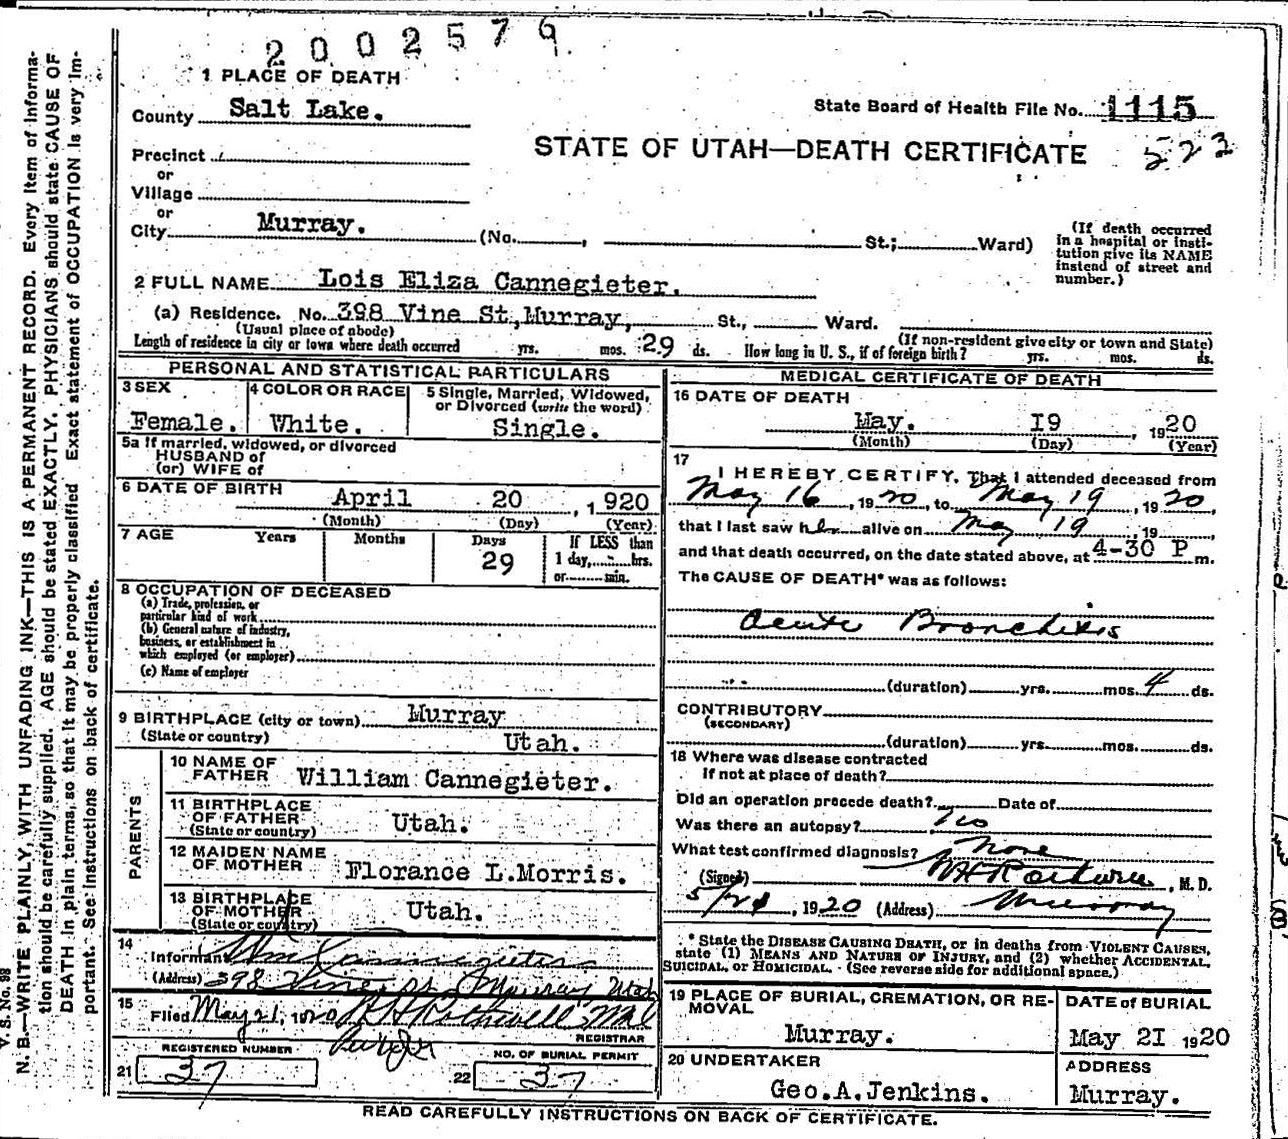 2002579.
1 PLACE OF DEATH
County Salt Lake.
State Board of Health File No. 1115
STATE OF UTAH—DEATH CERTIFICATE
522
Precinct
or
Village
or
City Murray. (No. , St.; Ward)
(If death occurred in a hospital or insti-
tution give its NAME
instead of street and
number.)
2 FULL NAME Lois Eliza Cannegieter.
(a) Residence. No. 398 Vine St., Murray, St., Ward.
(Usual place of abode) (If non-resident give city or town and State)
Length of residence in city or town where death occurred yrs. mos. 29 ds. How long in U. S., if of foreign birth? yrs. mos. ds.
PERSONAL AND STATISTICAL PARTICULARS
3 SEX Female.
4 COLOR OR RACE White.
5 Single, Married, Widowed,
or Divorced (write the word)
Single.
5a If married, widowed, or divorced
HUSBAND of
(or) WIFE of
6 DATE OF BIRTH April 20, 1920
(Month) (Day) (Year)
7 AGE Years Months Days 29
If LESS than
1 day, hrs.
or min.
8 OCCUPATION OF DECEASED
(a) Trade, profession, or
particular kind of work
(b) General nature of industry,
business, or establishment in
which employed (or employer)
(c) Name of employer
9 BIRTHPLACE (city or town) Murray
(State or country) Utah.
PARENTS
10 NAME OF
FATHER William Cannegieter.
11 BIRTHPLACE
OF FATHER
(State or country) Utah.
12 MAIDEN NAME
OF MOTHER Florance L.Morris.
13 BIRTHPLACE
OF MOTHER
(State or country) Utah.
14
Informant Wm Cannegieter
(Address) 398 Vine St Murray Utah
15
Filed May 21, 1920 H Rothwell Md
REGISTRAR
REGISTERED NUMBER
21 37
NO. OF BURIAL PERMIT
22 37
MEDICAL CERTIFICATE OF DEATH
16 DATE OF DEATH
May. 19, 1920
(Month) (Day) (Year)
17
I HEREBY CERTIFY, That I attended deceased from
May 16, 1920, to May 19, 1920,
that I last saw her alive on May 19, 19
and that death occurred, on the date stated above, at 4-30 P m.
The CAUSE OF DEATH* was as follows:
Acute Bronchitis
(duration) yrs. mos. 4 ds.
CONTRIBUTORY
(SECONDARY)
(duration) yrs. mos. ds.
18 Where was disease contracted
if not at place of death?
Did an operation precede death? Date of
Was there an autopsy? No
What test confirmed diagnosis? None
(Signed) H Rothwell, M. D.
5/21, 1920 (Address) Murray
* State the DISEASE CAUSING DEATH, or in deaths from VIOLENT CAUSES,
state (1) MEANS AND NATURE OF INJURY, and (2) whether ACCIDENTAL,
SUICIDAL, OR HOMICIDAL. (See reverse side for additional space.)
19 PLACE OF BURIAL, CREMATION, OR RE-
MOVAL
Murray.
DATE of BURIAL
May 21 1920
20 UNDERTAKER
Geo.A.Jenkins.
ADDRESS
Murray.
READ CAREFULLY INSTRUCTIONS ON BACK OF CERTIFICATE.
V. S. No. 98
N. B.—WRITE PLAINLY, WITH UNFADING INK—THIS IS A PERMANENT RECORD. Every item of informa-
tion should be carefully supplied. AGE should be stated EXACTLY. PHYSICIANS should state CAUSE OF
DEATH in plain terms, so that it may be properly classified. Exact statement of OCCUPATION is very im-
portant. See instructions on back of certificate.